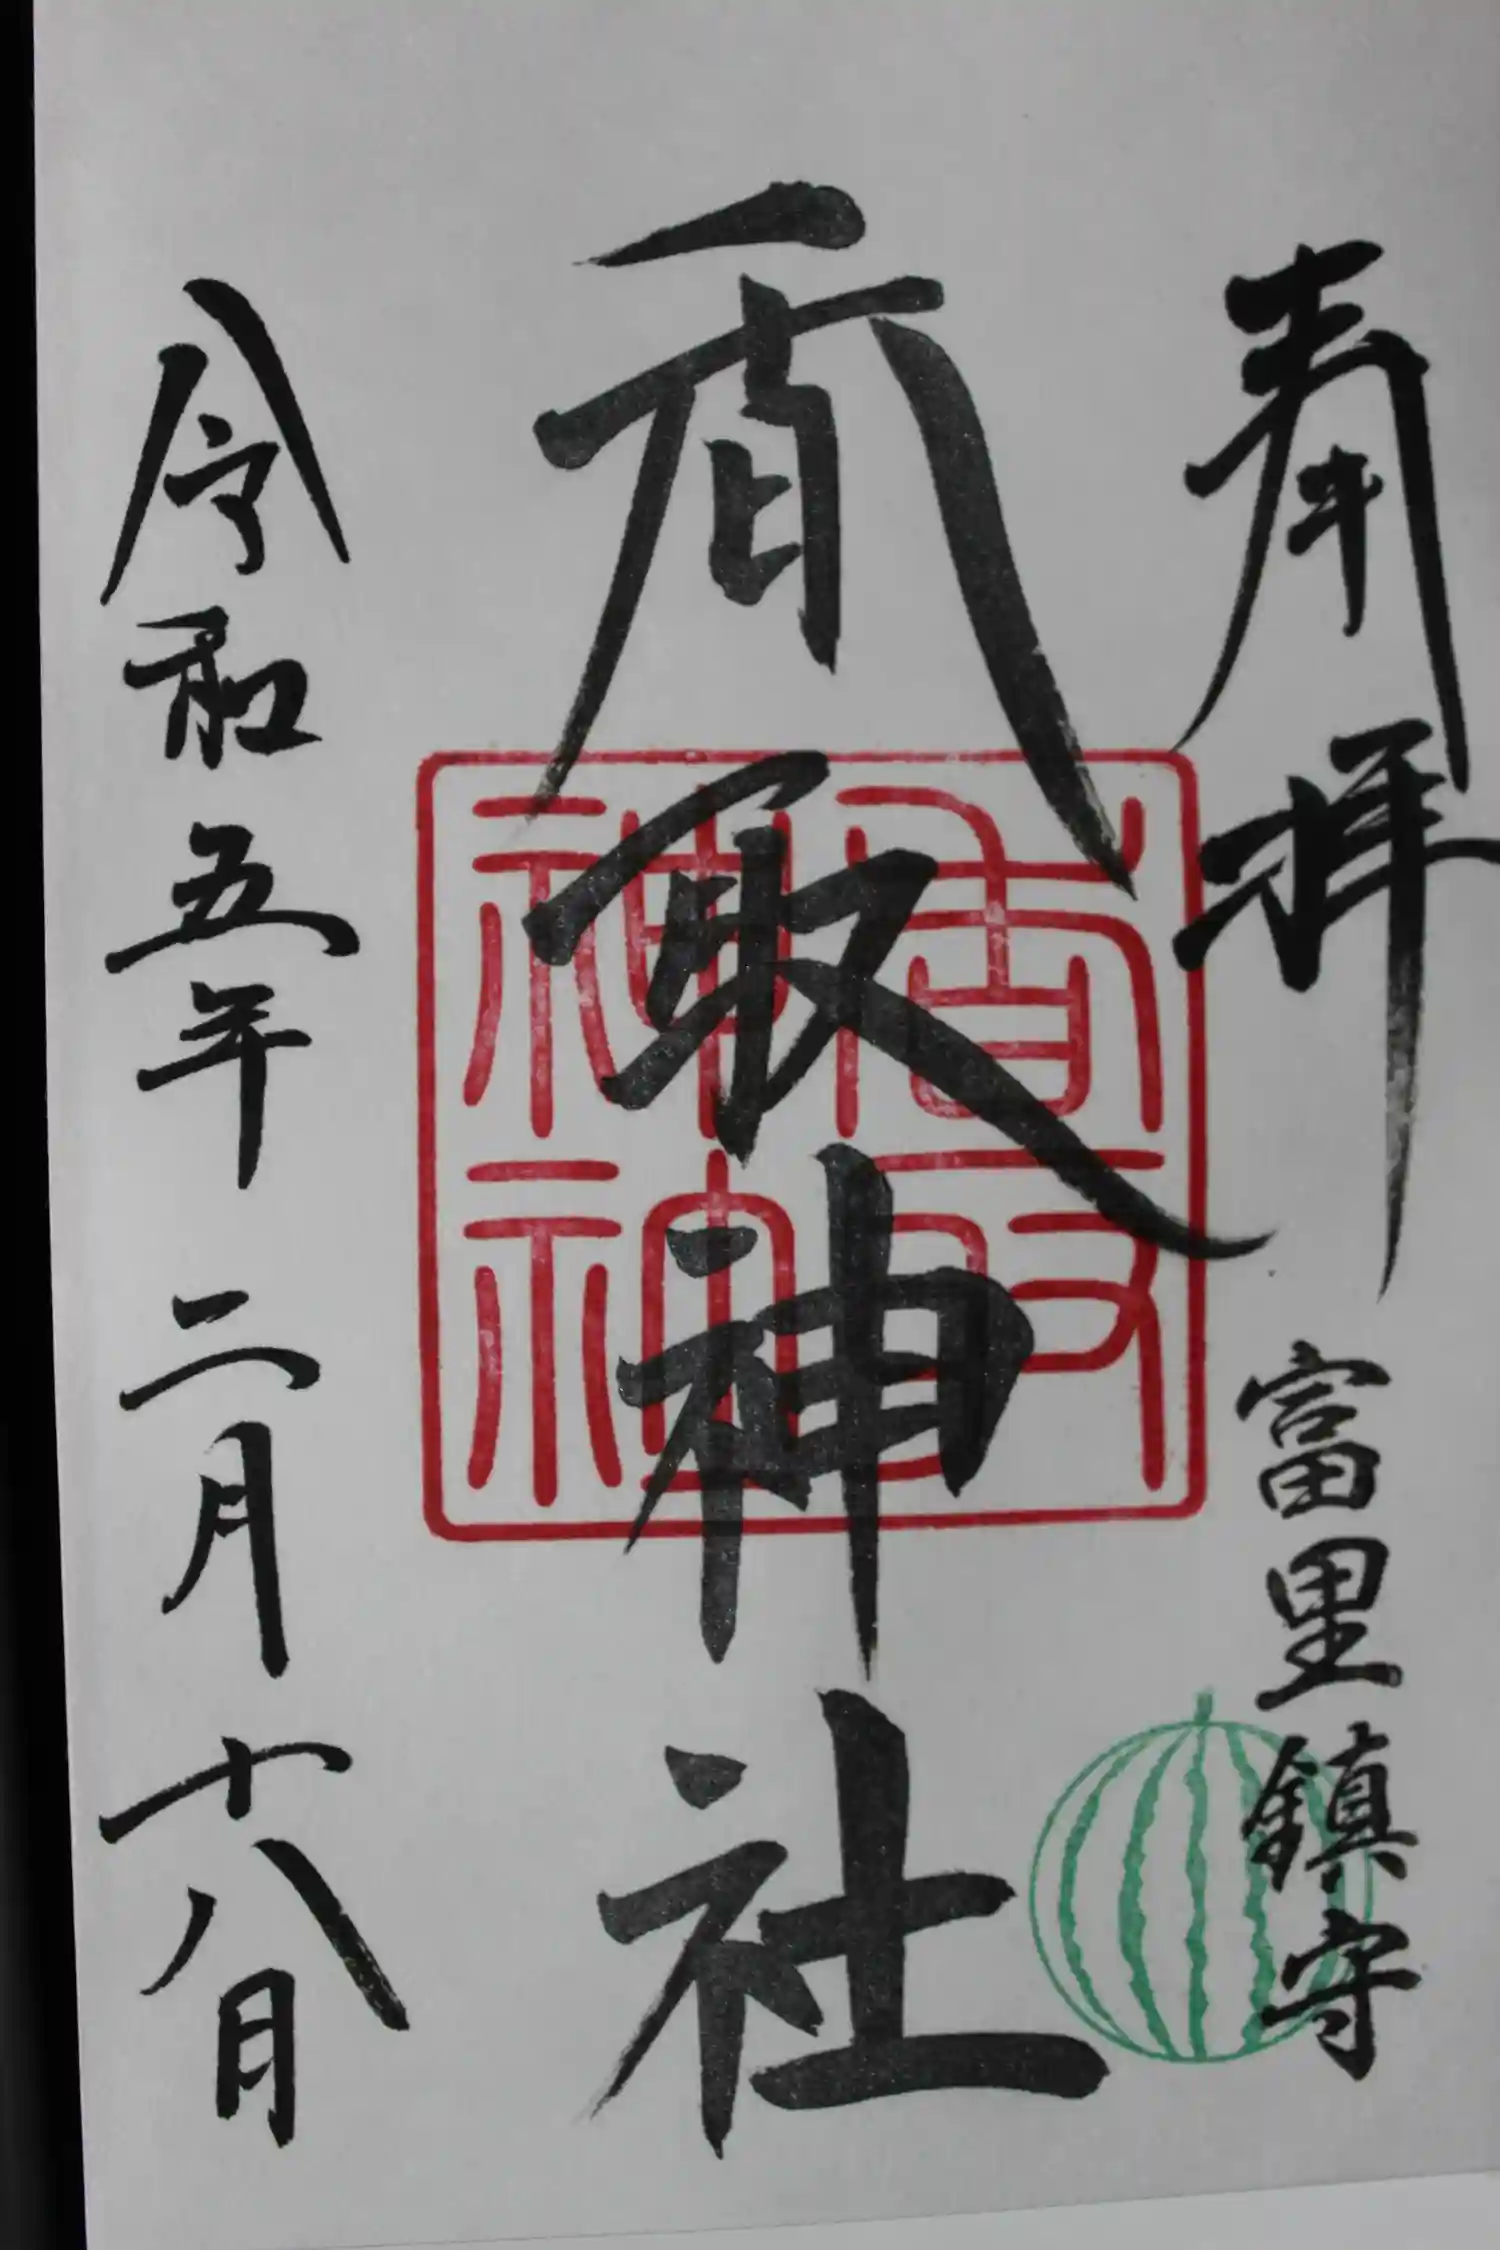 奉拝
富里鎮守
香取神社
香取神社
令和五年二月十八日